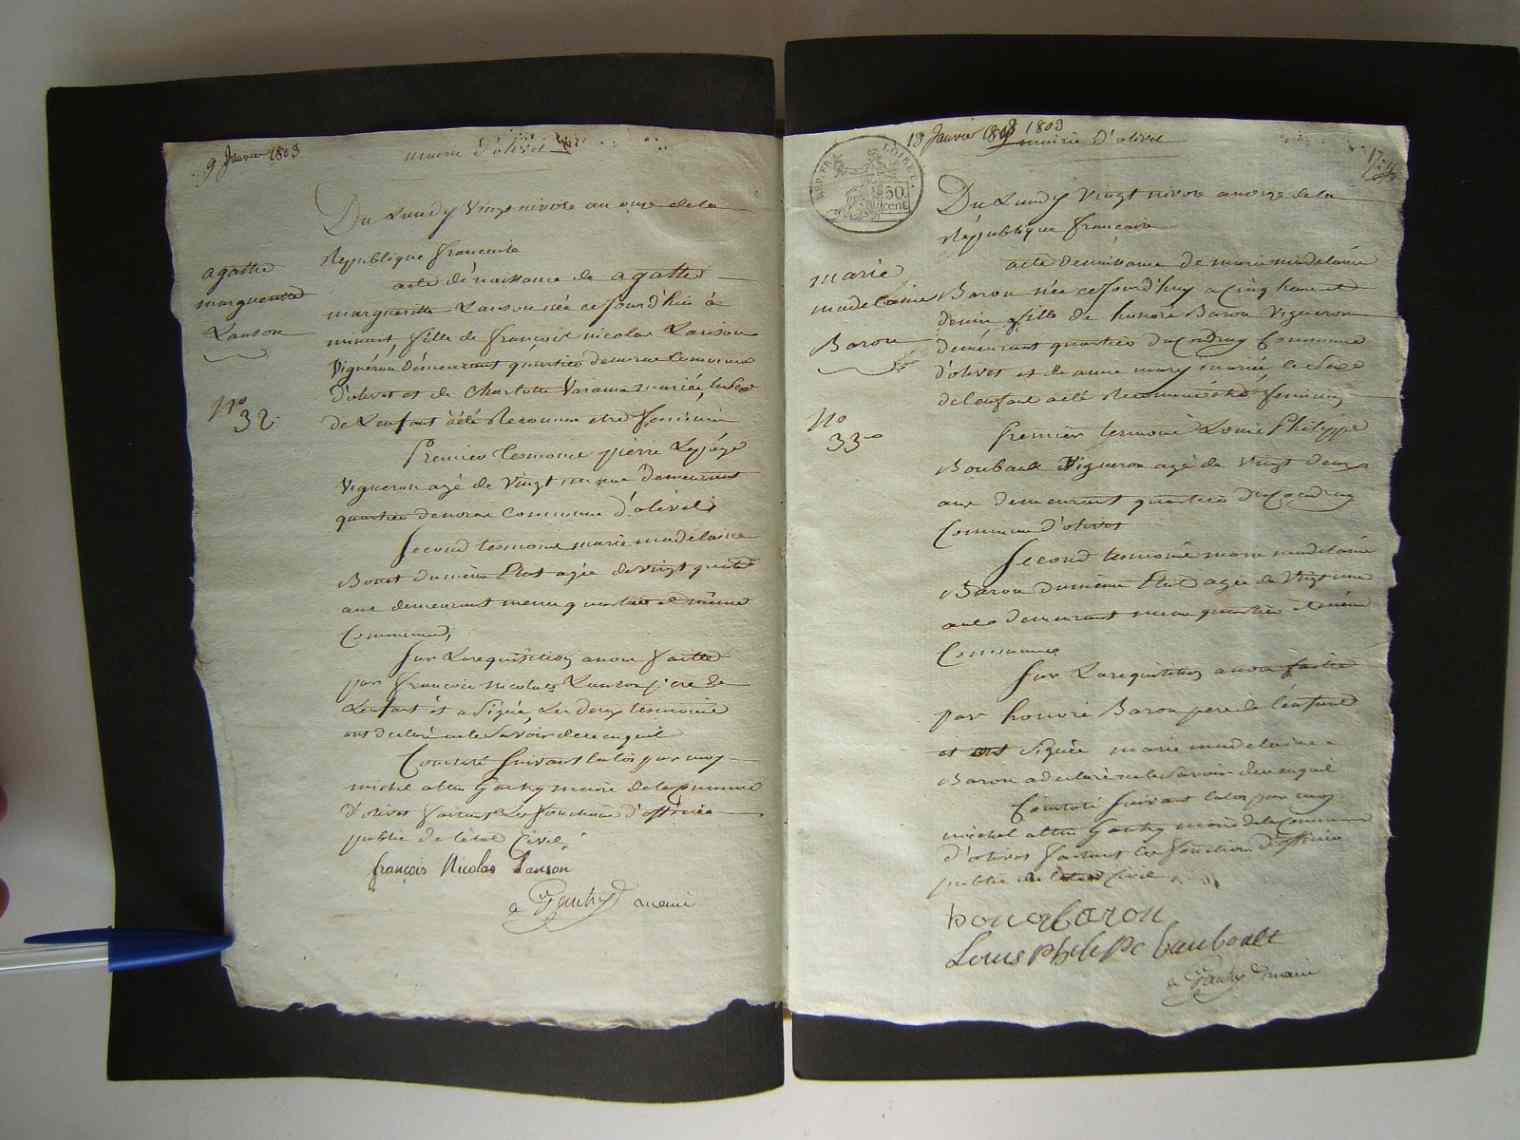 9 Janvier 1803
mairie d'olivet
Du Lundy Vingt nivose an onze de la
République francaise
agathe
marguerite
Lanson
No
32
acte de naissance de agathe
marguerite Lanson née ce Jourd'hui à
minuit fille de françois nicolas Lanson
Vigneron demeurant quartier de commune
d'olivet et de Charlotte mariée, le Sexe
de L'enfant à été Reconnu etre feminin
Premier tesmoins pierre
Vigneron agé de Vingt neuf demeurant
quartier commune d'olivet
Second tesmoins marie madelaine
du même Etat agée de vingt quatre
ans demeurant meme quartier et même
Commune,
Sur La requisition a nous faitte
par françois nicolas Lanson pere de
L'enfant et a Signé, Les deux tesmoins
ont declaré ne le Savoir de ce enquit
Constaté Suivant la loi par moy
michel Gauthy maire de la Commune
d'olivet faisant Les fonctions d'officier
public de l'etat Civil
françois Nicolas Lanson
Gauthy maire
13 Janvier 1803
mairie d'olivet
REP. FRA. LOIRET
50 cent
Du Lundy Vingt nivose an onze de la
République francaise
marie
madelaine
Baron
No
33
acte de naissance de marie madelaine
Baron née ce Jourd'huy a Cinq heure et
demie fille de honoré Baron Vigneron
demeurant quartier du Coudray Commune
d'olivet et de anne mary mariée le Sexe
de l'enfant a été Reconnu etre feminin
Premier tesmoins Louis Philippe
Boubault Vigneron agé de Vingt deux
ans demeurant quartier du Coudray
Commune d'olivet
Second tesmoins marie madelaine
Baron du même Etat agée de Vingt une
ans demeurant meme quartier et même
Commune
Sur La requisition a nous faitte
par honoré Baron pere de l'enfant
et ont Signée marie madelaine
Baron a declaré ne le Savoir de ce enquit
Constaté Suivant la loi par moy
michel Gauthy maire de la Commune
d'olivet faisant les fonctions d'officier
public de l'etat Civil
honore baron
Louis Philipe baubault
Gauthy maire